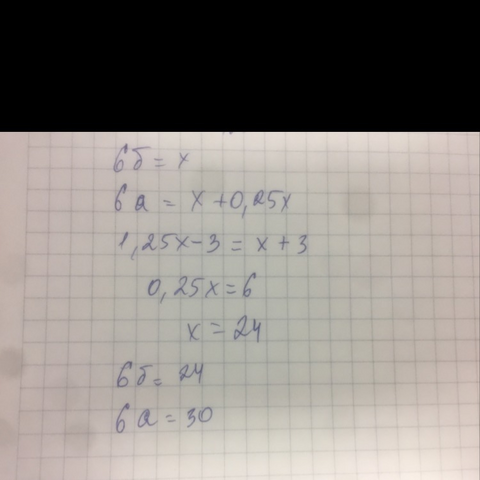 6б = x
6а = x + 0,25x
1,25x - 3 = x + 3
0,25x = 6
x = 24
6б = 24
6а = 30